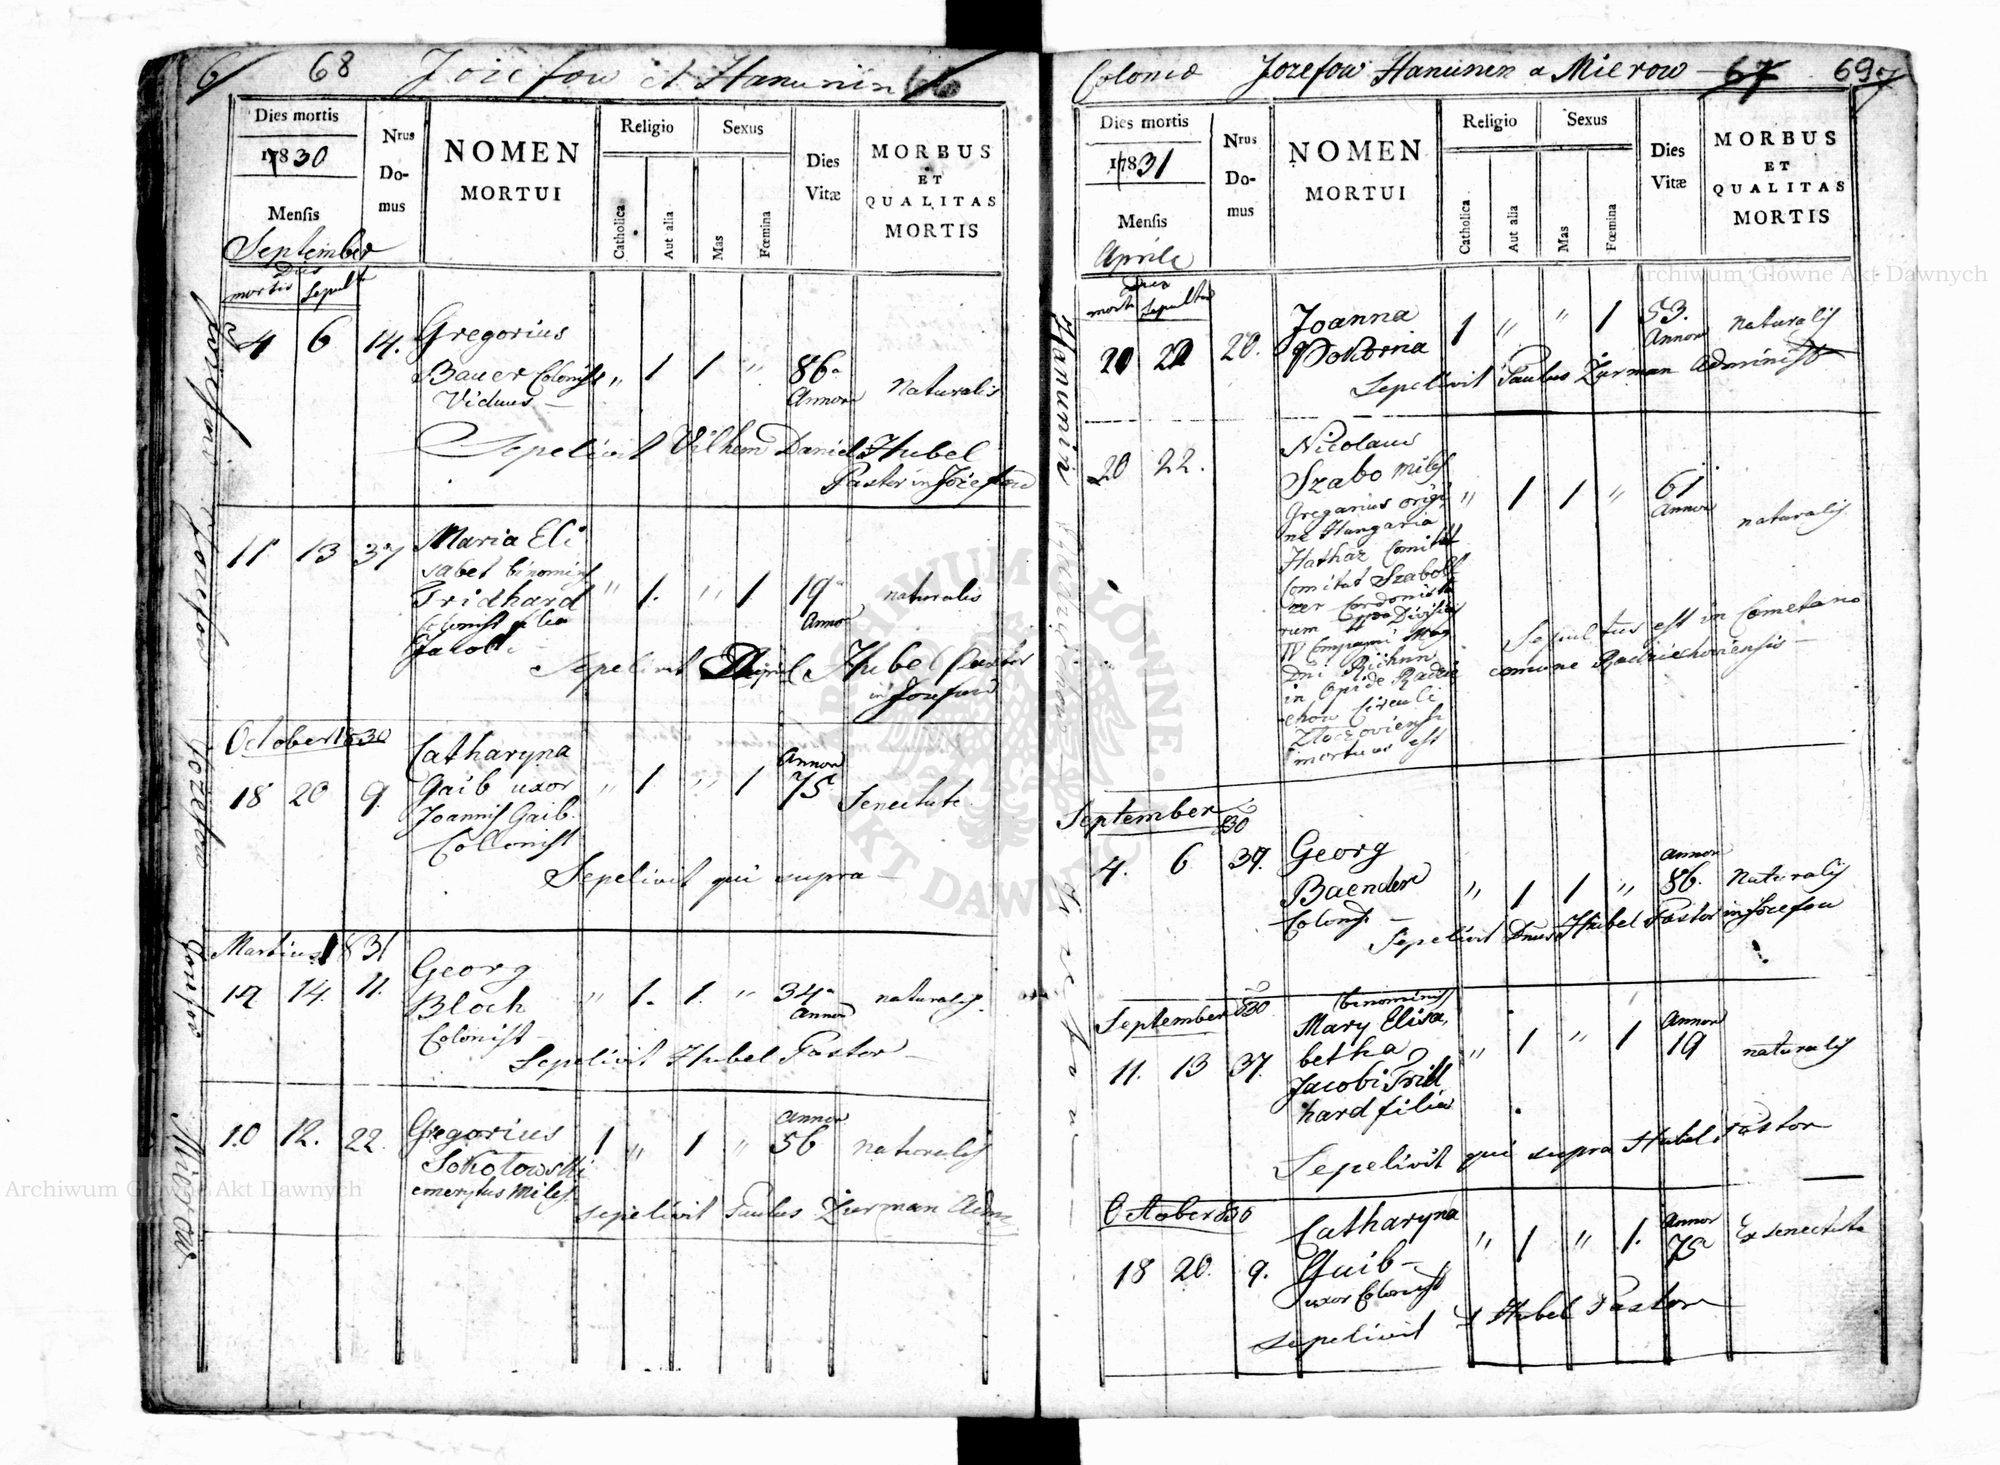 68 Jozefow et Hanunin
Dies mortis
1830
Mensis
September
Dies
mortis Sepult
Nrus
Do-
mus
NOMEN
MORTUI
Religio
Catholica
Aut alia
Sexus
Mas
Fœmina
Dies
Vitæ
MORBUS
ET
QUALITAS
MORTIS
4 6 14. Gregorius
Bauer Colonist " 1 1 " 86 Annor naturalis
Viduus
Sepelivit Vilhem Daniel Hubel
Pastor in Jozefow
11 13 37 Maria Eli
sabet binomins
Fridhard " 1. " 1 19 Annor naturalis
Colonist filia
Jacobi
Sepelivit Hubel Pastor
in Jozefow
October 1830
18 20 9. Catharyna
Gaib uxor " 1 " 1 Annor 75 Senectute
Joannis Gaib
Colonist
Sepelivit qui supra
Martius 1831
12 14. 11. Georg
Bloch " 1. 1. " 34 Annor naturalis
Colonist
Sepelivit Hubel Pastor
10 12. 22. Gregorius 1 " 1 " Annor 56 naturalis
Sokołowski
emerytus Miles
sepelivit Paulus Zurman Adm
Jozefow Jozefow Jozefow Jozefow Mierow
Colonia Jozefow Hanunin a Mierow 67 69
Dies mortis
1831
Mensis
Aprile
Dies
mortis sepultus
Nrus
Do-
mus
NOMEN
MORTUI
Religio
Catholica
Aut alia
Sexus
Mas
Fœmina
Dies
Vitæ
MORBUS
ET
QUALITAS
MORTIS
20 22 20. Joanna 1 " " 1 53. Annor naturalis
Pokorna
Sepelivit Paulus Zurman Administ
20 22. Nicolaus
Szabo miles " 1 1 " 61 Annor naturalis
Gregarius origi
ne Hungaria
Hathaz Comitat
Comitat Szabolt
Cordonista
rum Divisias
IV Compani Mag
Dni
in Opide Radzie
chow Circuli
Zloczoviensi
mortuus est
Sepultus est in Cometario
comune Radziechoviensis
September 830
4. 6 37. Georg
Baender " 1 1 " Annor 86. Naturalis
Colonist
Sepelivit Dnus Hubel Pastor in Jozefow
September 830
binominis
11. 13 37. Mary Elisa, " 1 " 1 Annor 19 naturalis
betha
Jacobi Frid
hard filia
Sepelivit qui supra Hubel Pastor
October 830
18 20. 9. Catharyna " 1 " 1. Annor 75 Ex senectute
Guib
uxor Colonist
sepelivit Hubel Pastor
Hanunin
Archiwum Główne Akt Dawnych
Archiwum Główne Akt Dawnych
ARCHIWUM GŁÓWNE AKT DAWNYCH